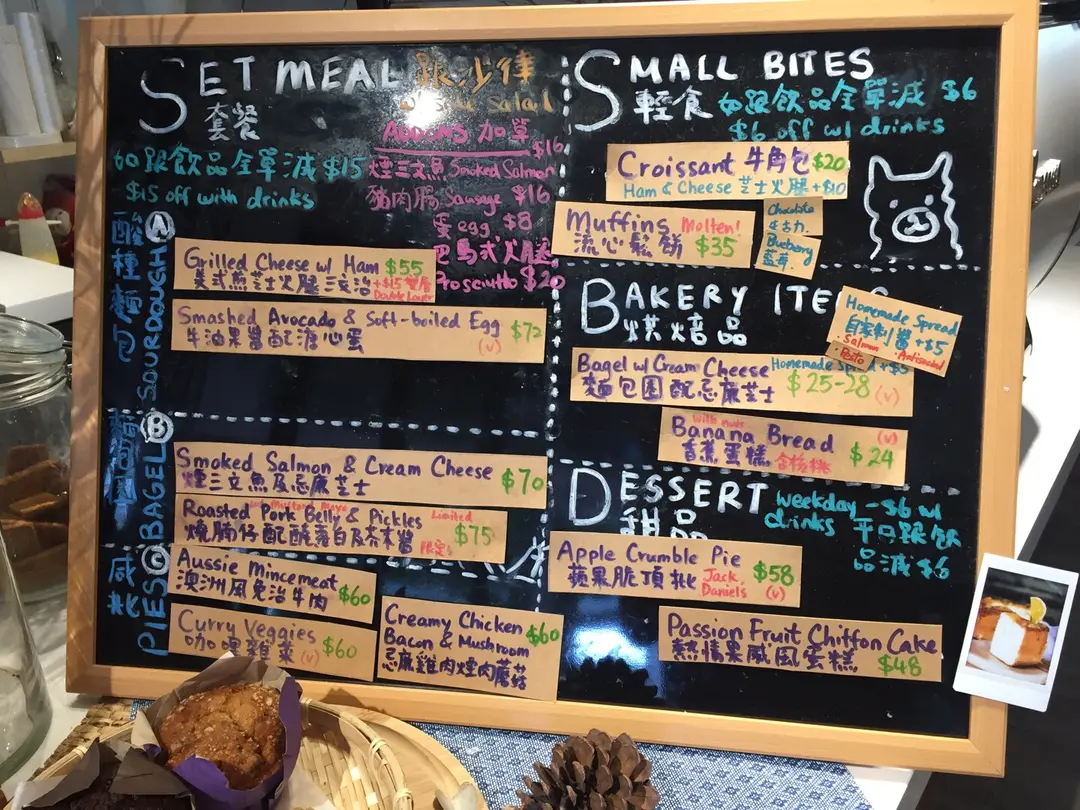 SET MEAL 跟沙律
w/ Side Salad
套餐
如跟飲品全單減 $15
$15 off with drinks
ADDONS 加單
$16
煙三文魚 Smoked Salmon
豬肉腸 Sausage $16
蛋 egg $8
巴馬式火腿
Prosciutto $20
酸種麵包 SOURDOUGH A
Grilled Cheese w/ Ham $55
美式煎芝士火腿三文治 +$15 雙層
Double Layer
Smashed Avocado & Soft-boiled Egg $72
牛油果醬配溏心蛋 (v)
麵包圈 BAGEL B
Smoked Salmon & Cream Cheese $70
煙三文魚及忌廉芝士
with Mustard Mayo
Roasted Pork Belly & Pickles Limited $75
限定!
鹹批 PIES C
Aussie Mincemeat $60
澳洲風免治牛肉
Curry Veggies $60
咖哩雜菜 (v)
Creamy Chicken $60
Bacon & Mushroom
忌廉雞肉煙肉蘑菇
SMALL BITES
輕食 如跟飲品全單減 $6
$6 off w/ drinks
Croissant 牛角包 $20
Ham & Cheese 芝士火腿 +$10
Muffins Molten!
流心鬆餅 $35
Chocolate
Blueberry
藍莓
BAKERY ITE
烘焙品
Homemade Spread
自家制醬 +$5
• Salmon
• Pesto
Bagel w/ Cream Cheese Homemade Spread +$5
麵包圈配忌廉芝士 $25-28 (v)
with nuts
Banana Bread (v)
香蕉蛋糕 含核桃 $24
DESSERT
甜品
weekday -$6 w/
drinks 平日跟飲
品減 $6
Apple Crumble Pie $58
蘋果脆頂批 Jack
Daniels (v)
Passion Fruit Chiffon Cake
熱情果戚風蛋糕 $48